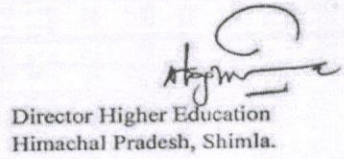 Director Higher Education
Himachal Pradesh, Shimla.